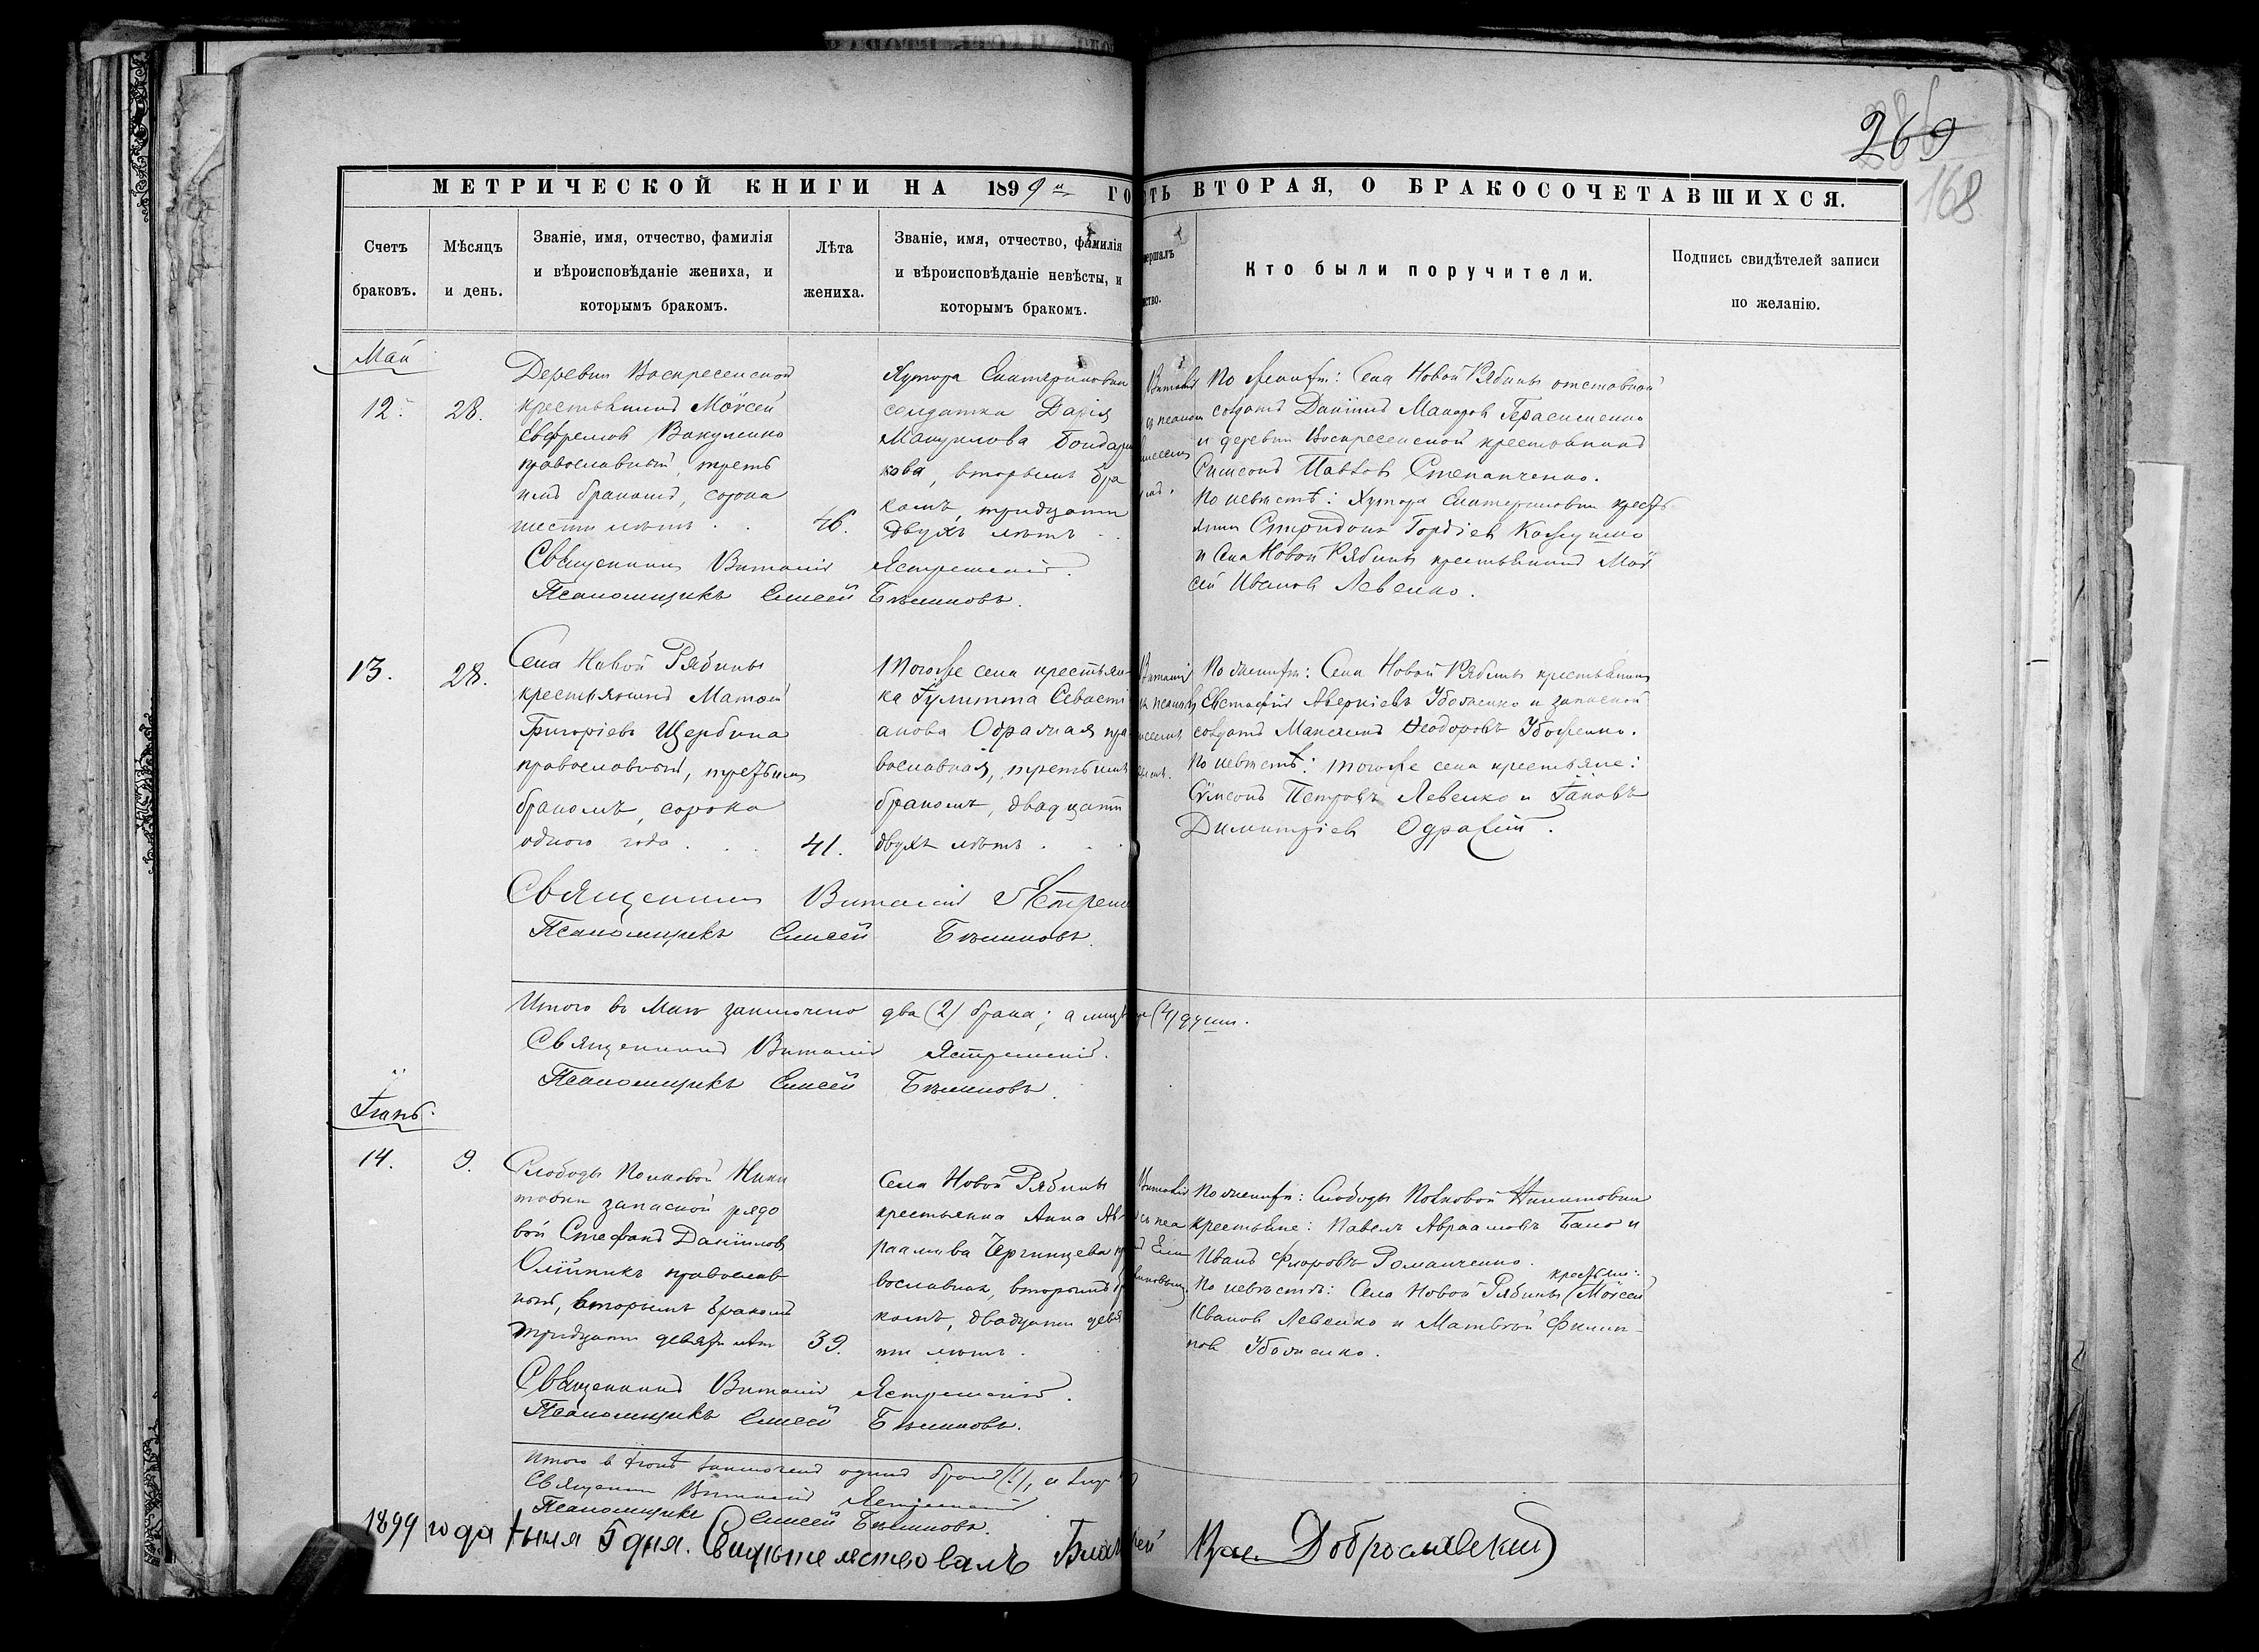 269
168
МЕТРИЧЕСКОЙ КНИГИ НА 1899й ГО
СТЬ ВТОРАЯ, О БРАКОСОЧЕТАВШИХСЯ.
Счетъ браковъ.
Мѣсяцъ и день.
Званіе, имя, отчество, фамилія и вѣроисповѣданіе жениха, и которымъ бракомъ.
Лѣта жениха.
Званіе, имя, отчество, фамилія и вѣроисповѣданіе невѣсты, и которымъ бракомъ.
Кто были поручители.
Подпись свидѣтелей записи по желанію.
Май
12.
28.
Деревни Воскресенской
крестьянинъ Моѵсей
Евфремовъ Вакуленко
православный, треть
имъ бракомъ, сорока
шести лѣтъ
46.
Хутора Екатериновки
солдатка Дарія
Мануилова Бондарен
кова, вторымъ бра
комъ, тридцати
двухъ лѣтъ
По женихѣ: Села Новой Рябины отставной
солдатъ Даніилъ Макаровъ Герасименко
и деревни Воскресенской крестьянинъ
Симеонъ Павловъ Степанченко.
По невѣстѣ: Хутора Екатериновки кресть
янинъ Спиридонъ Гордіевъ
и Села Новой Рябины крестьянинъ Моѵ
сей Ивановъ Левенко.
Священникъ Виталій Ястремскій.
Псаломщикъ Елисей
13.
28.
Села Новой Рябины
крестьянинъ Матѳей
Григоріевъ Щербина
православный, третьимъ
бракомъ, сорока
одного года
41.
Тогоже села крестьян
ка Іулитта Севасті
анова Одражая пра
вославная, третьимъ
бракомъ, двадцати
двухъ лѣтъ
По женихѣ: Села Новой Рябины крестьянинъ
Евстафій Аверкіевъ Убоженко и запасной
солдатъ Максимъ Ѳеодоровъ Убоженко.
По невѣстѣ: тогоже села крестьяне:
Сѵмеонъ Петровъ Левенко и Іаковъ
Димитріевъ Одражій.
Священникъ Виталій Ястрем
Псаломщикъ Елисей
Итого въ Маѣ заключено два (2) брака; а лицъ (4) души.
Священникъ Виталій Ястремскій.
Псаломщикъ Елисей
Іюнь.
14.
9.
Слободы Полковой Ники
товки запасной рядо
вой Стефанъ Даніиловъ
Олійникъ православ
ный, вторымъ бракомъ
тридцати девяти лѣтъ
39.
Села Новой Рябины
крестьянка Анна Ав
раамова Чернинцева пра
вославная, вторымъ бра
комъ, двадцати девя
ти лѣтъ.
По женихѣ: Слободы Полковой Никитовки
крестьяне: Павелъ Авраамовъ и
Иванъ Флоровъ Романченко.
По невѣстѣ: Села Новой Рябины крестьяне: Моѵсей
Ивановъ Левенко и Матвѣй Филип
повъ Убоженко.
Священникъ Виталій Ястремскій.
Псаломщикъ Елисей
Итого въ Іюнѣ заключенъ одинъ бракъ (1), а лицъ
Священникъ Виталій Ястремскій
Псаломщикъ Елисей
1899 года Іюля 5 дня. Свидѣтельствовалъ Благ Доброславскій